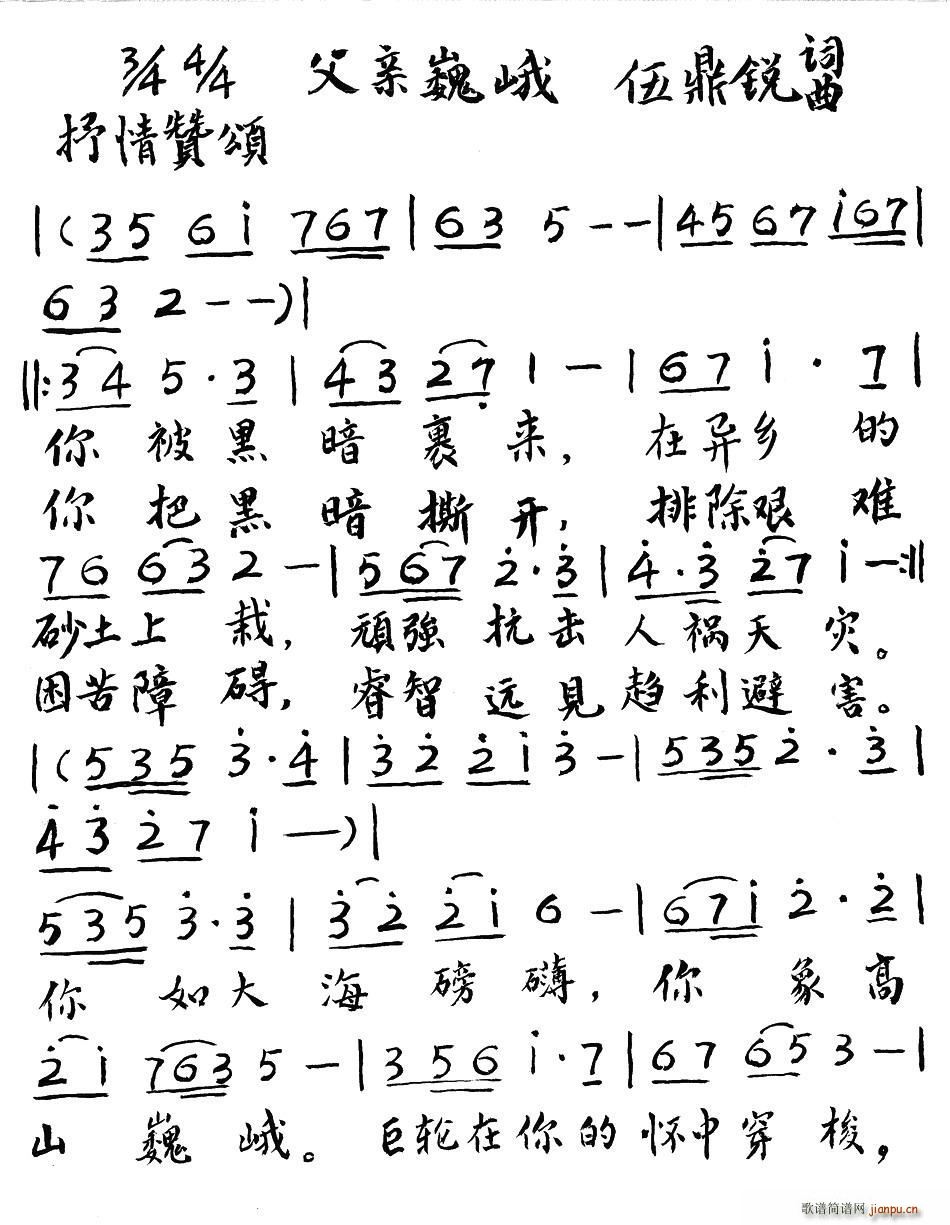 3/4 4/4 父亲巍峨 伍鼎銳 词曲
抒情贊頌
|(35 6i 767|63 5--|45 67 i67|
63 2--)|
||:34 5·3|43 27 1-|67 i·7|
你被黑暗裹来，在异乡的
你把黑暗撕开，排除艰难
76 63 2-|567 2·3|4·3 27 i-:||
砂土上栽，頑強抗击人祸天灾。
困苦障碍，睿智远見趋利避害。
|(535 3·4|32 2i 3-|535 2·3|
43 27 i—)|
535 3·3|32 2i 6-|67i 2·2|
你如大海磅礴，你象高
2i 763 5-|356 i·7|67 65 3-|
山巍峨。巨轮在你的怀中穿梭，
歌谱简谱网 jianpu.cn